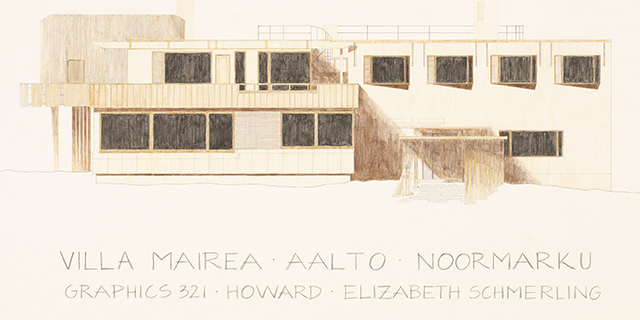 VILLA MAIREA · AALTO · NOORMARKU
GRAPHICS 321 · HOWARD · ELIZABETH SCHMERLING